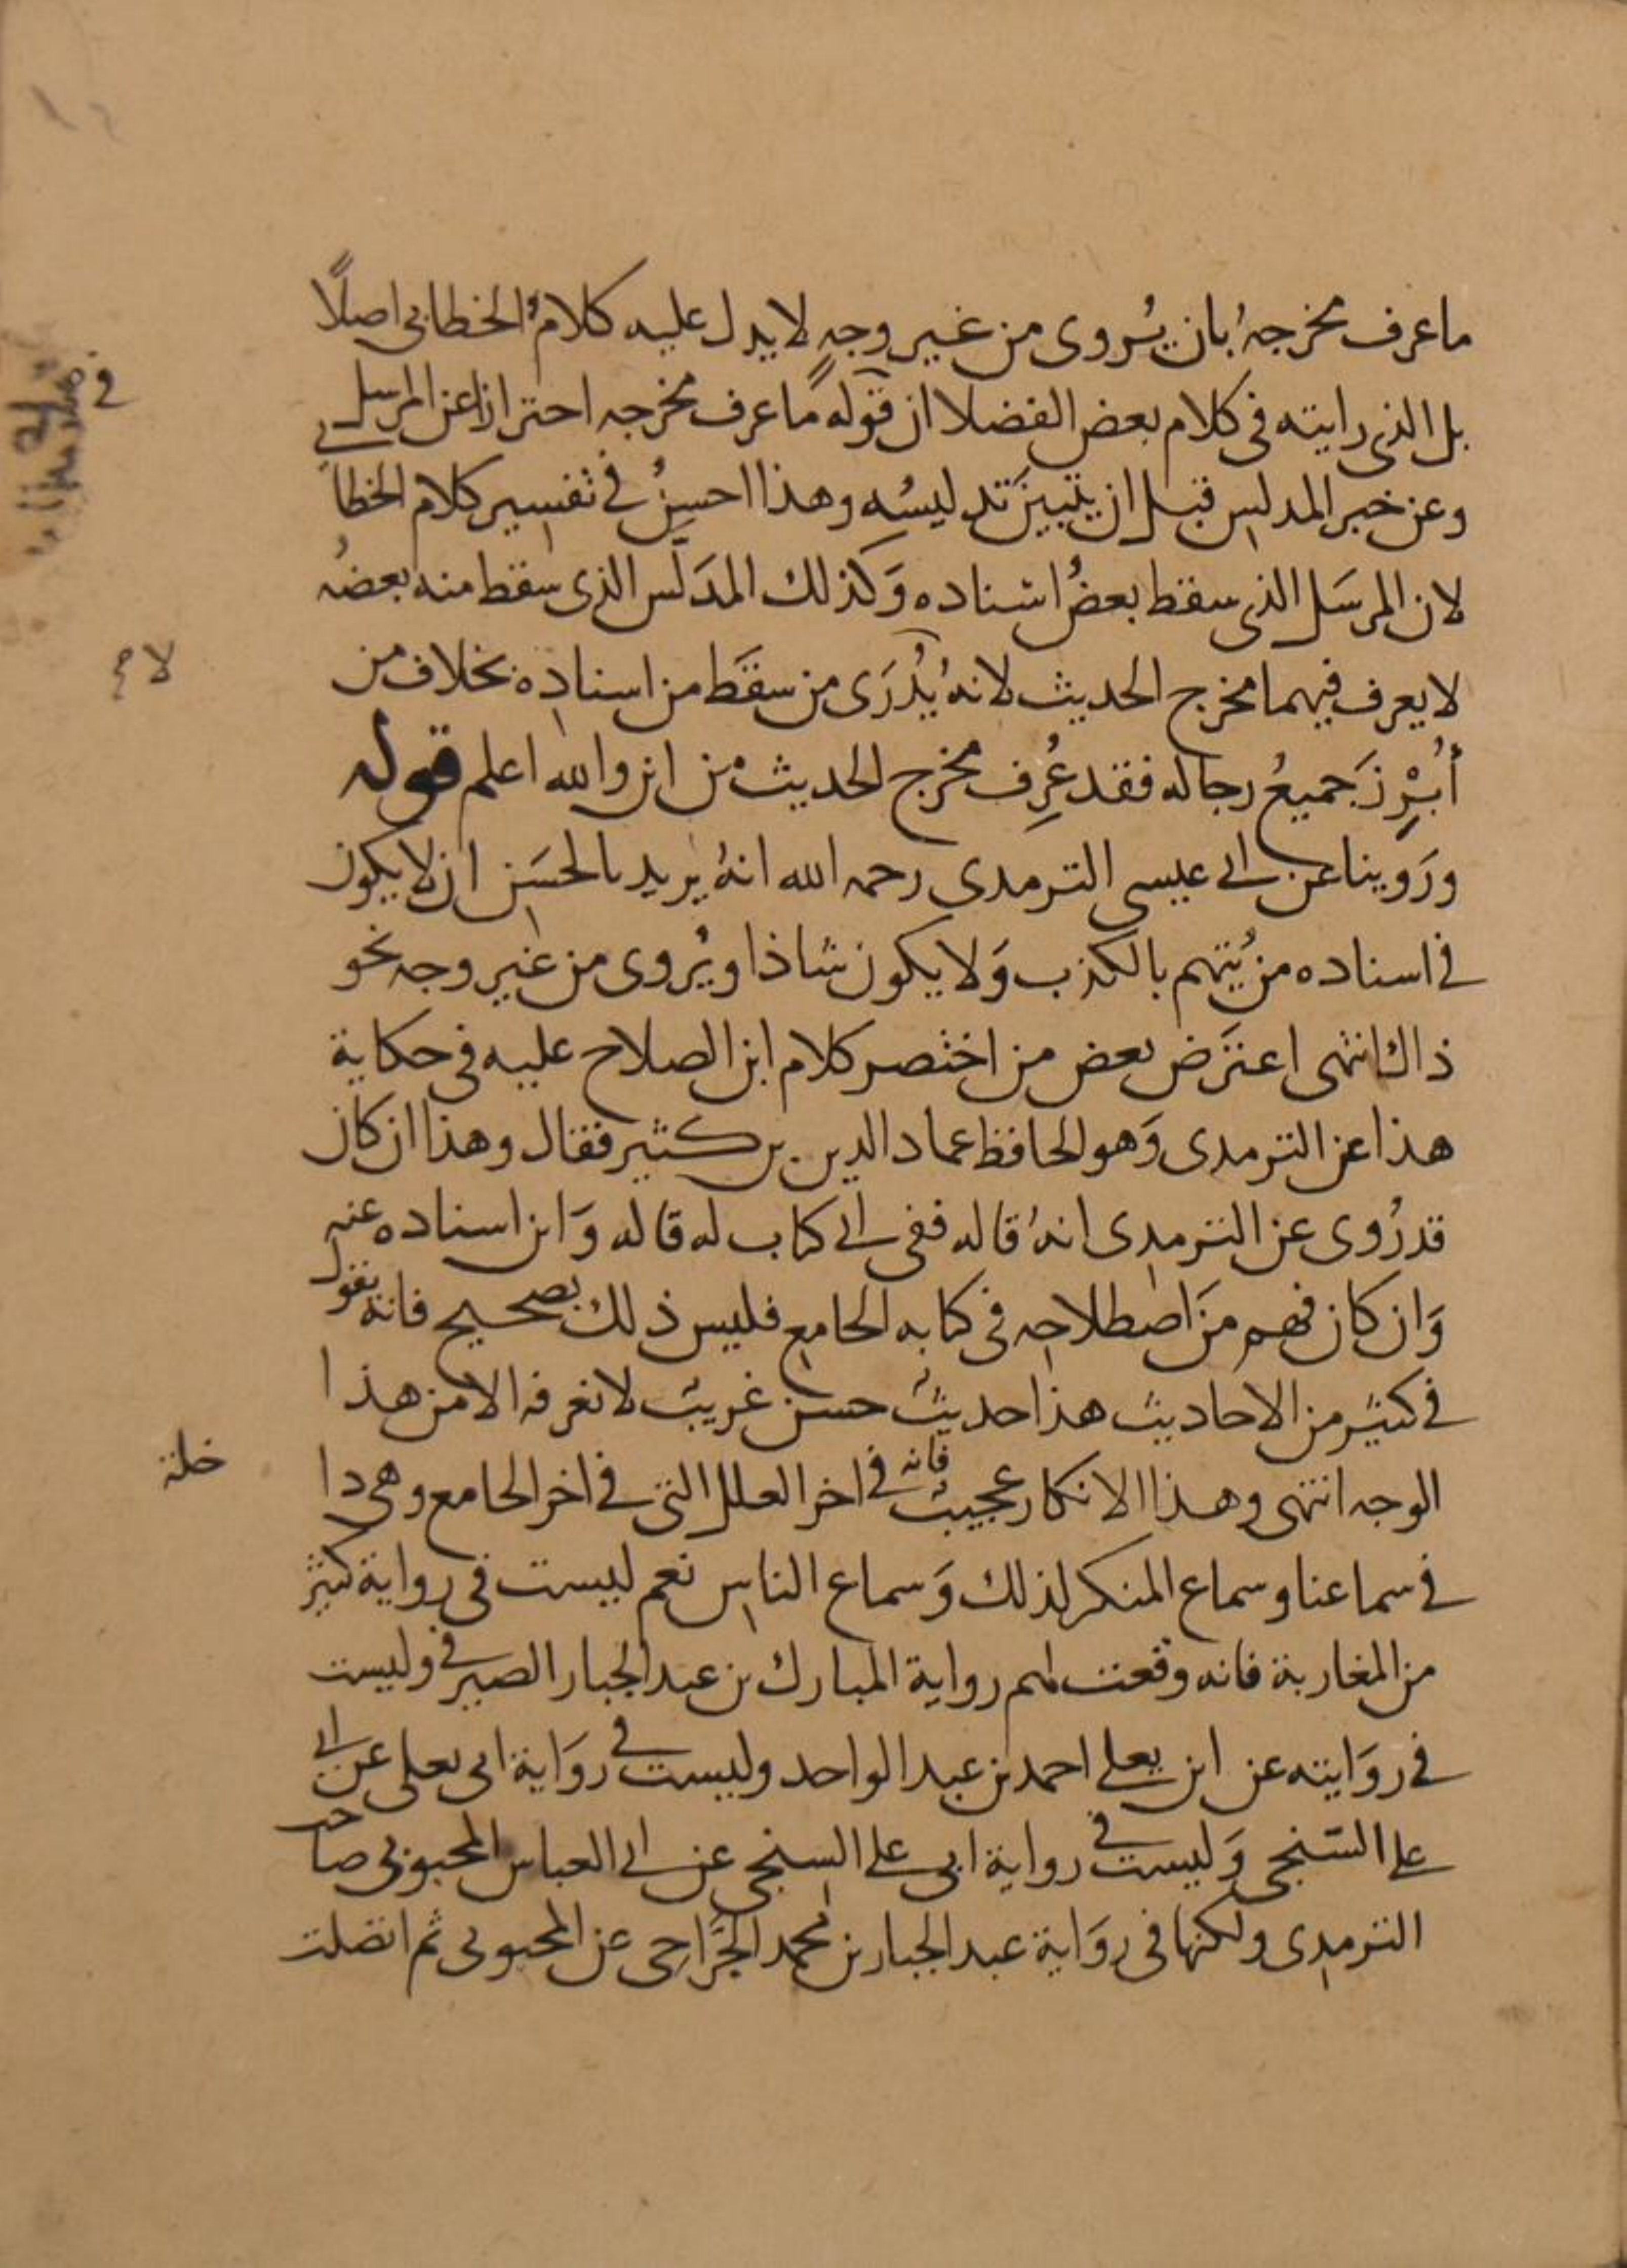 ما عرف مخرجهُ بان يُروى من غير وجهٍ لا يدل عليه كلامُ الخطابي اصلًا
بل الذي رايته في كلام بعض الفضلا ان قوله ما عرف مخرجه احترازا عن المرسل
وعن خبر المدلس قبل ان يتبين تدليسُه وهذا احسنُ في تفسير كلام الخطابي
لان المرسَل الذي سقط بعضُ اسناده وَكذلك المدَلَّس الذي سقط منه بعضُه
لا يعرف فيهما مخرج الحديث لانهُ يُدْرَى من سقَط من اسناده بخلاف من
أُبْرِزَ جميعُ رجاله فقد عُرِف مخرج الحديث من اين والله اعلم قوله
ورَوينا عن ابي عيسى الترمدي رحمه الله انهُ يريد بالحسَن ان لا يكون
في اسناده من يُتهم بالكذب وَلا يكون شاذا ويُروى من غير وجه نحو
ذاك انتهى اعترَض بعض من اختصر كلام ابن الصلاح عليه في حكاية
هذا عن الترمدي وَهو الحافظ عماد الدين بن كثير فقال وهذا ان كان
قد رُوى عن الترمدي انهُ قاله ففي اي كتاب له قاله وَاين اسناده عنه
وَان كان فهم منَ اصطلاحه في كتابه الجامع فليس ذلك بصحيح فانه يقول
في كثير من الاحاديث هذا حديث حسن غريب لا نعرفه الا من هذا
الوجه انتهى وهذا الانكار عجيب فانه في اخر العلل التي في اخر الجامع وهى دا
خلة
في سماعنا وسماع المنكر لذلك وَسماع الناس نعم ليست في رواية كثير
من المغاربة فانه وقعت لهم رواية المبارك بن عبد الجبار الصيرفي وليست
في روَايته عن ابن يعلي احمد بن عبد الواحد وليست في روَاية ابى يعلى عن ابي
علي السّنجي وَليست في رواية ابى على السنجي عن ابي العباس المحبوبي صاحب
الترمدي ولكنها في روَاية عبد الجبار بن محمد الجَّراحي عن المحبوبى ثم اتصلت
لا صح